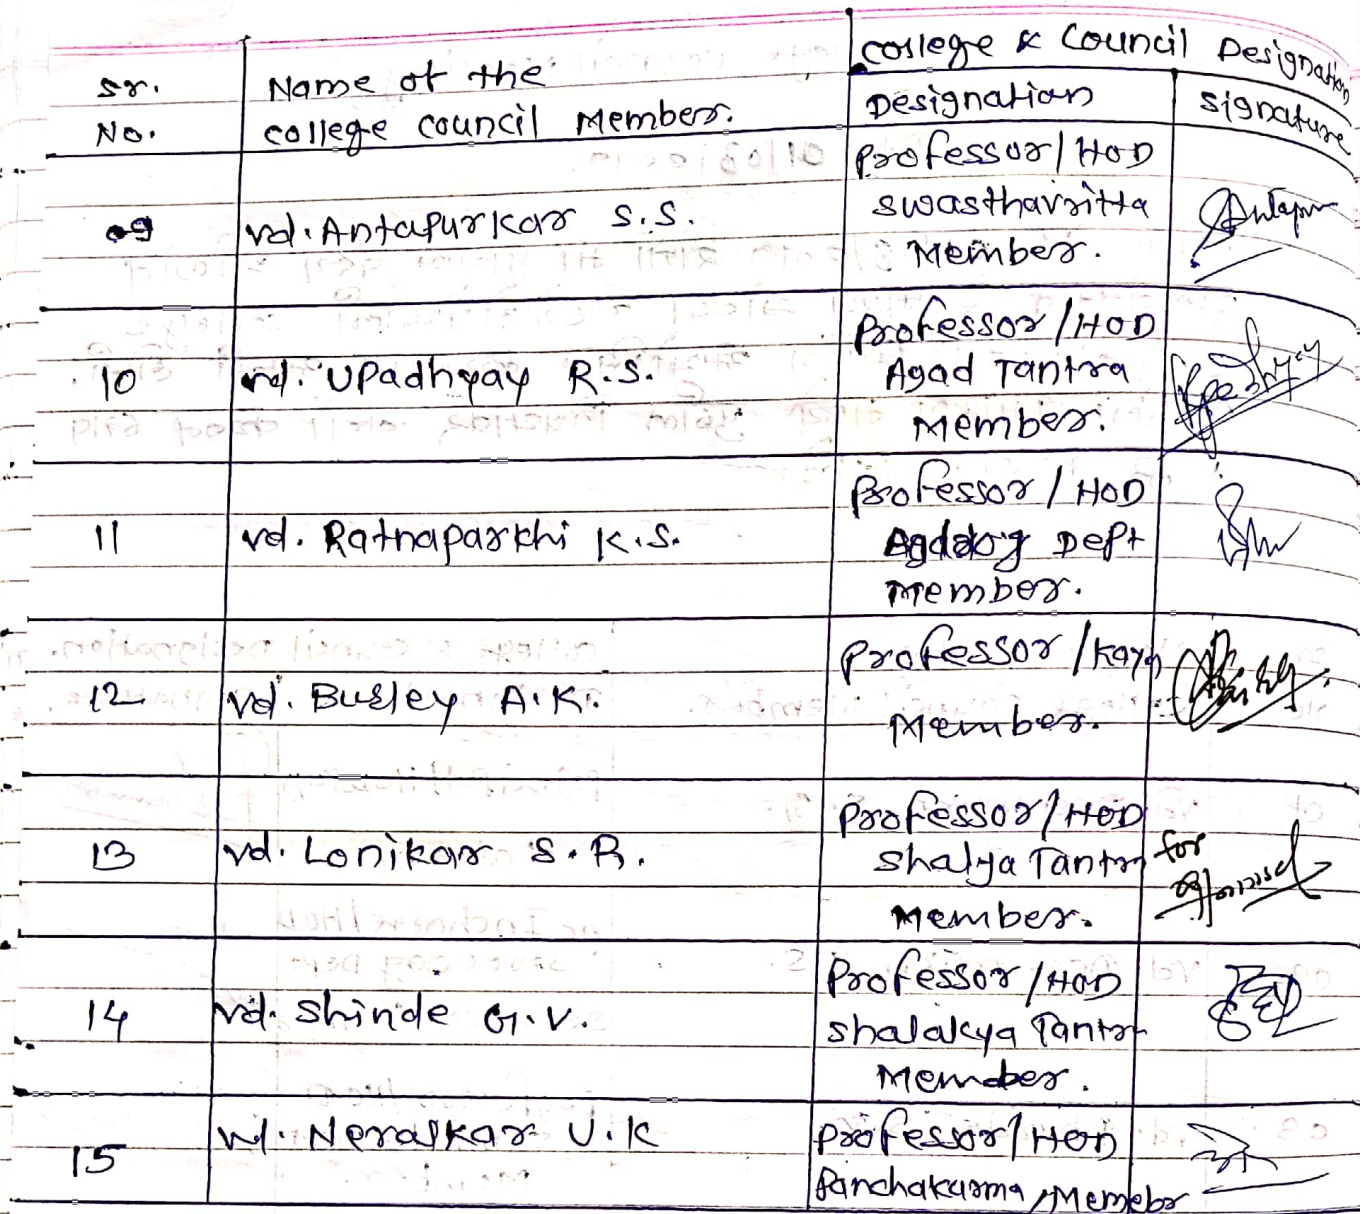 College & Council Designation
Sr. No. Name of the College Council Member. Designation Signature
09 Vd. Antapurkar S.S. Professor/HOD
Swasthavritta
Member.
10 Vd. Upadhyay R.S. Professor/HOD
Agad Tantra
Member.
11 Vd. Ratnaparkhi K.S. Professor/HOD
Dept
Member.
12 Vd. Busley A.K. Professor/Kaya
Member.
13 Vd. Lonikar S.R. Professor/HOD for
Shalya Tantra
Member.
14 Vd. Shinde G.V. Professor/HOD
Shalakya Tantra
Memeber.
15 Vd. Neralkar U.K Professor/HOD
Panchakarma/Memebr